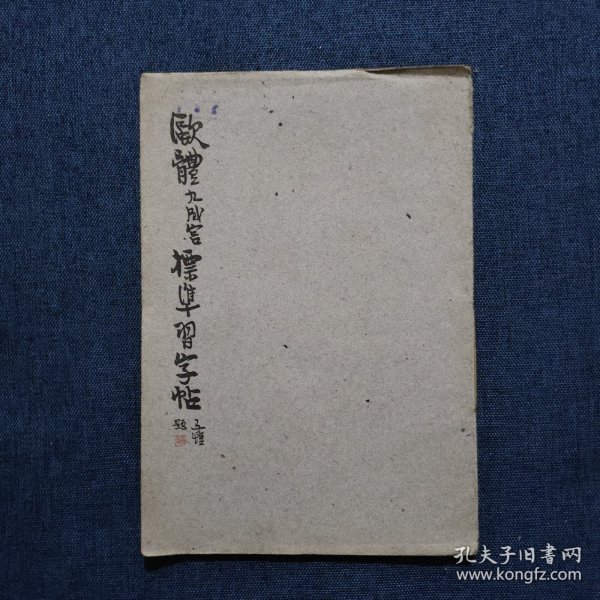 歐體九成宮標準習字帖
孔夫子旧書网
www.kongfz.com